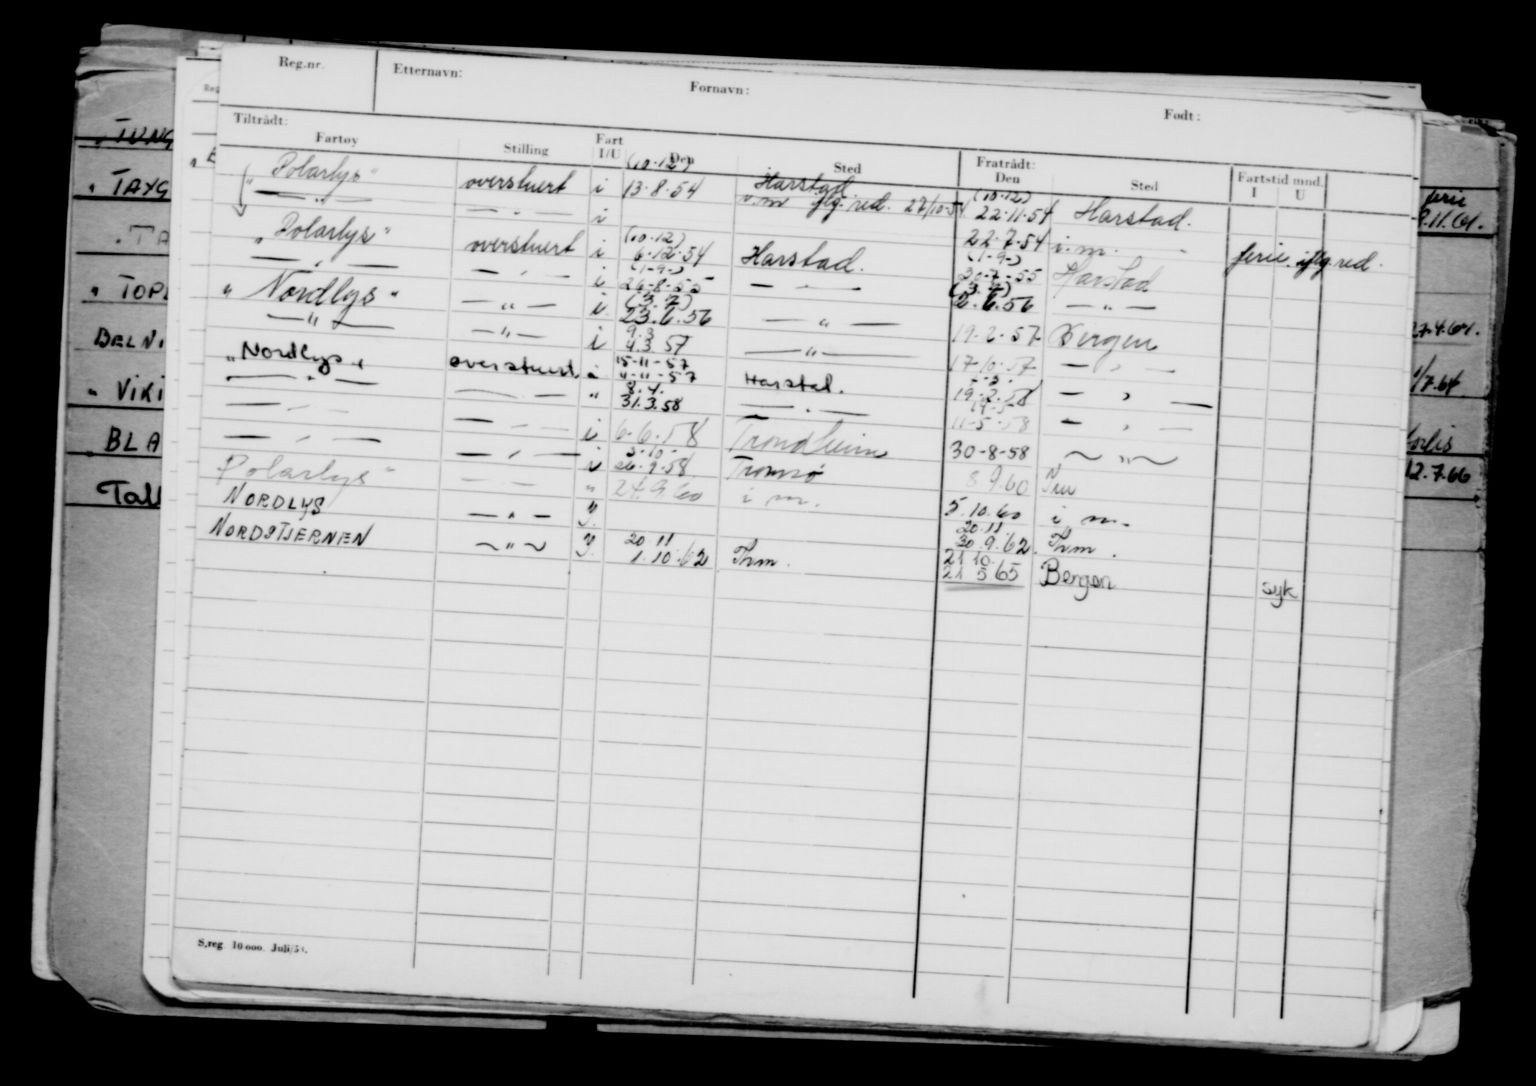 Reg.nr. Etternavn: Fornavn: Født:
Tiltrådt: Fratrådt:
Fartøy Stilling Fart I/U Den Sted Den Sted Fartstid mnd. I U
(10-12) (10-12)
"Polarlys" overstuert i 13-8-54 Harstad 22-11-54 Harstad.
— " — — " — i i.m iflg. red. 27/10-54 22-7-54 i.m. ferie iflg red.
(10-12) (1-9-)
"Polarlys" overstuert i 6-12-54 Harstad. 20-7-55 Harstad
(1-9-) (3.7)
— " — — " — i 26-8-55 — " — 2.6.56 — " —
(3.7)
"Nordlys" — " — i 23.6.56 — " — 19-2-57 Bergen
9.3
— " — — " — i 4.3 57 — " — 17-10-57 — " —
15-11-57
"Nordlys" overstuert i 4-11-57 Harstad. 19-2-58 — " —
8.4.
— " — — " — " 31.3.58 — " — 11-5-58 — " —
— " — — " — i 6-6-58 Trondheim 30-8-58 — " —
3-10-
— " — — " — i 26-9-58 Tromsø 8.9.60
Polarlys" — " — " 24.9.60 i m. 5.10.60 i m.
20.11
NORDLYS — " — I. 30.9.62 Thm.
20.11 21 10
NORDSTJERNEN — " — I. 1.10.62 Thm. 21 5 65 Bergen syk
S.reg. 10 000. Juli/53.
"TAYG
"TOPL
BELN
"VIKI
BLA
Tal
27.4.64.
1/7.64
12.7.66